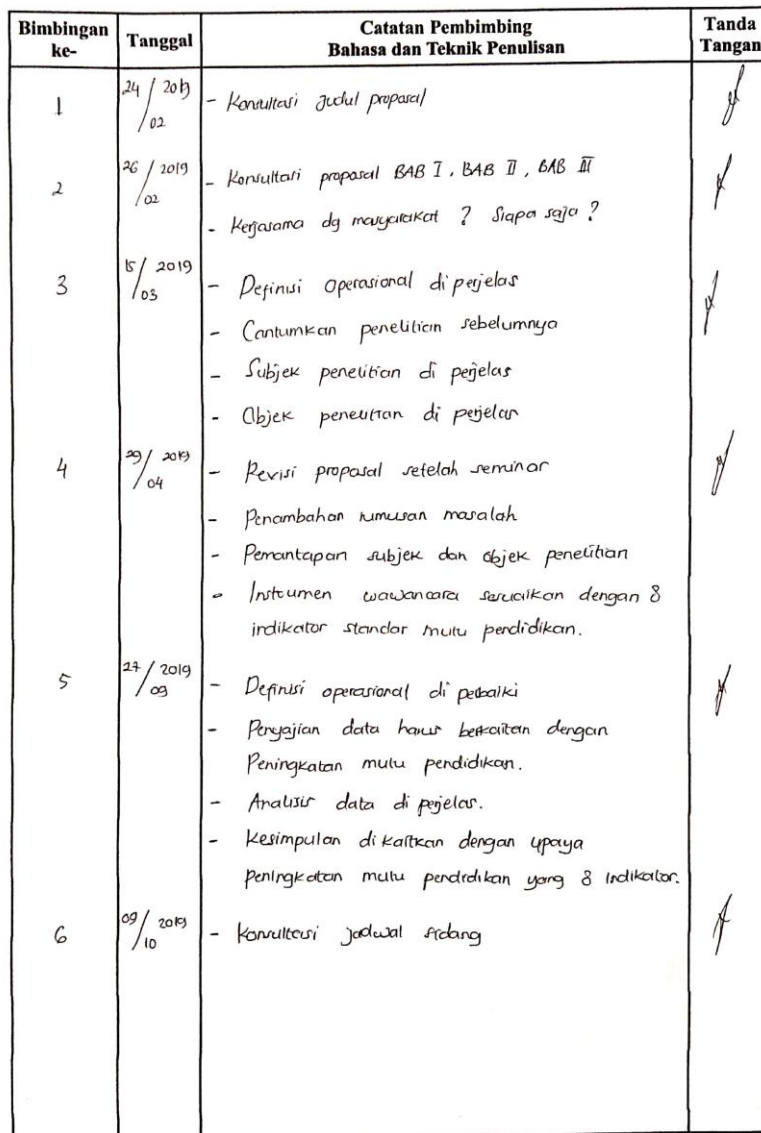 Bimbingan ke- Tanggal Catatan Pembimbing Tanda Tangan
Bahasa dan Teknik Penulisan
1 24/02 2019 - Konsultasi judul proposal
2 26/02 2019 - Konsultasi proposal BAB I, BAB II, BAB III
- Kerjasama dg masyarakat ? Siapa saja ?
3 15/03 2019 - Definisi operasional di perjelas
- Cantumkan penelitian sebelumnya
- Subjek penelitian di perjelas
- Objek penelitian di perjelas
4 29/04 2019 - Revisi proposal setelah seminar
- Penambahan rumusan masalah
- Pemantapan subjek dan objek penelitian
- Instrumen wawancara sesuaikan dengan 8
indikator standar mutu pendidikan.
5 27/09 2019 - Definisi operasional di perbaiki
- Penyajian data harus berkaitan dengan
Peningkatan mutu pendidikan.
- Analisis data di perjelas.
- Kesimpulan di kaitkan dengan upaya
peningkatan mutu pendidikan yang 8 indikator.
6 09/10 2019 - Konsultasi jadwal sidang